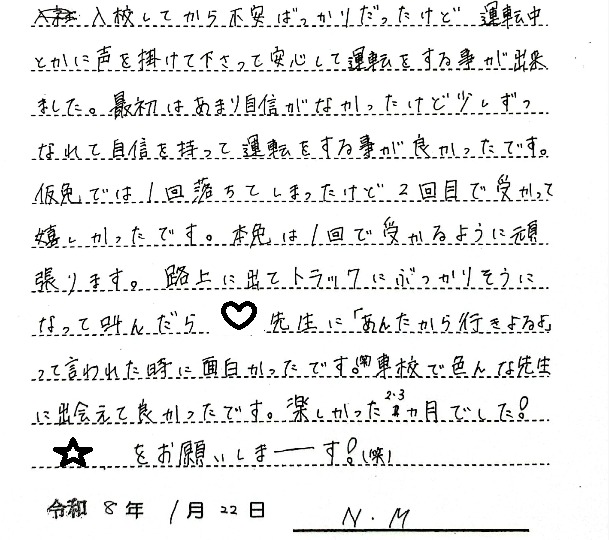 入校してから不安ばっかりだったけど 運転中
とかに声を掛けて下さって安心して運転をする事が出来
ました。最初はあまり自信がなかったけど少しずつ
なれて自信を持って運転をする事が良かったです。
仮免では1回落ちてしまったけど2回目で受かって
嬉しかったです。本免は1回で受かるように頑
張ります。 路上に出てトラックにぶつかりそうに
なって叫んだら ♡ 先生に「あんたから行きよるよ」
って言われた時に面白かったです。(笑)車校で色んな先生
に出会えて良かったです。楽しかった2.3ヵ月でした!
☆ をお願いしまーーす!(笑)
令和 8年 1月 22日 N.M